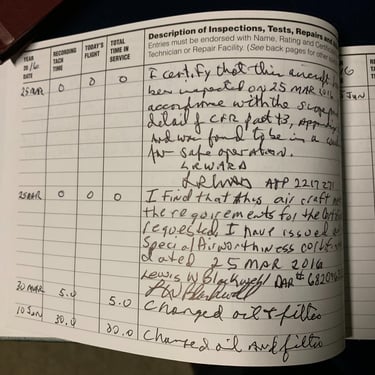 YEAR
20 16
DATE
RECORDING
TACH
TIME
TODAY'S
FLIGHT
TOTAL
TIME IN
SERVICE
Description of Inspections, Tests, Repairs and
Entries must be endorsed with Name, Rating and Certificate
Technician or Repair Facility. (See back pages for other
25 MAR 0 0 0 I certify that this aircraft
been inspected on 25 MAR 2016
accordance with the scope
detail of CFR Part 43,
And was found to be in a
for safe operation.
LRWARD
LRWARD A&P
25 MAR 0 0 0 I find that this air craft
the requirements for the
requested. I have issued a
Special Airworthiness
dated 25 MAR 2016
Lewis W Blackwell DAR#
30 MAR 5.0 5.0 Changed oil & filter
10 JUN 30.0 Changed oil AND filter
6
JUN